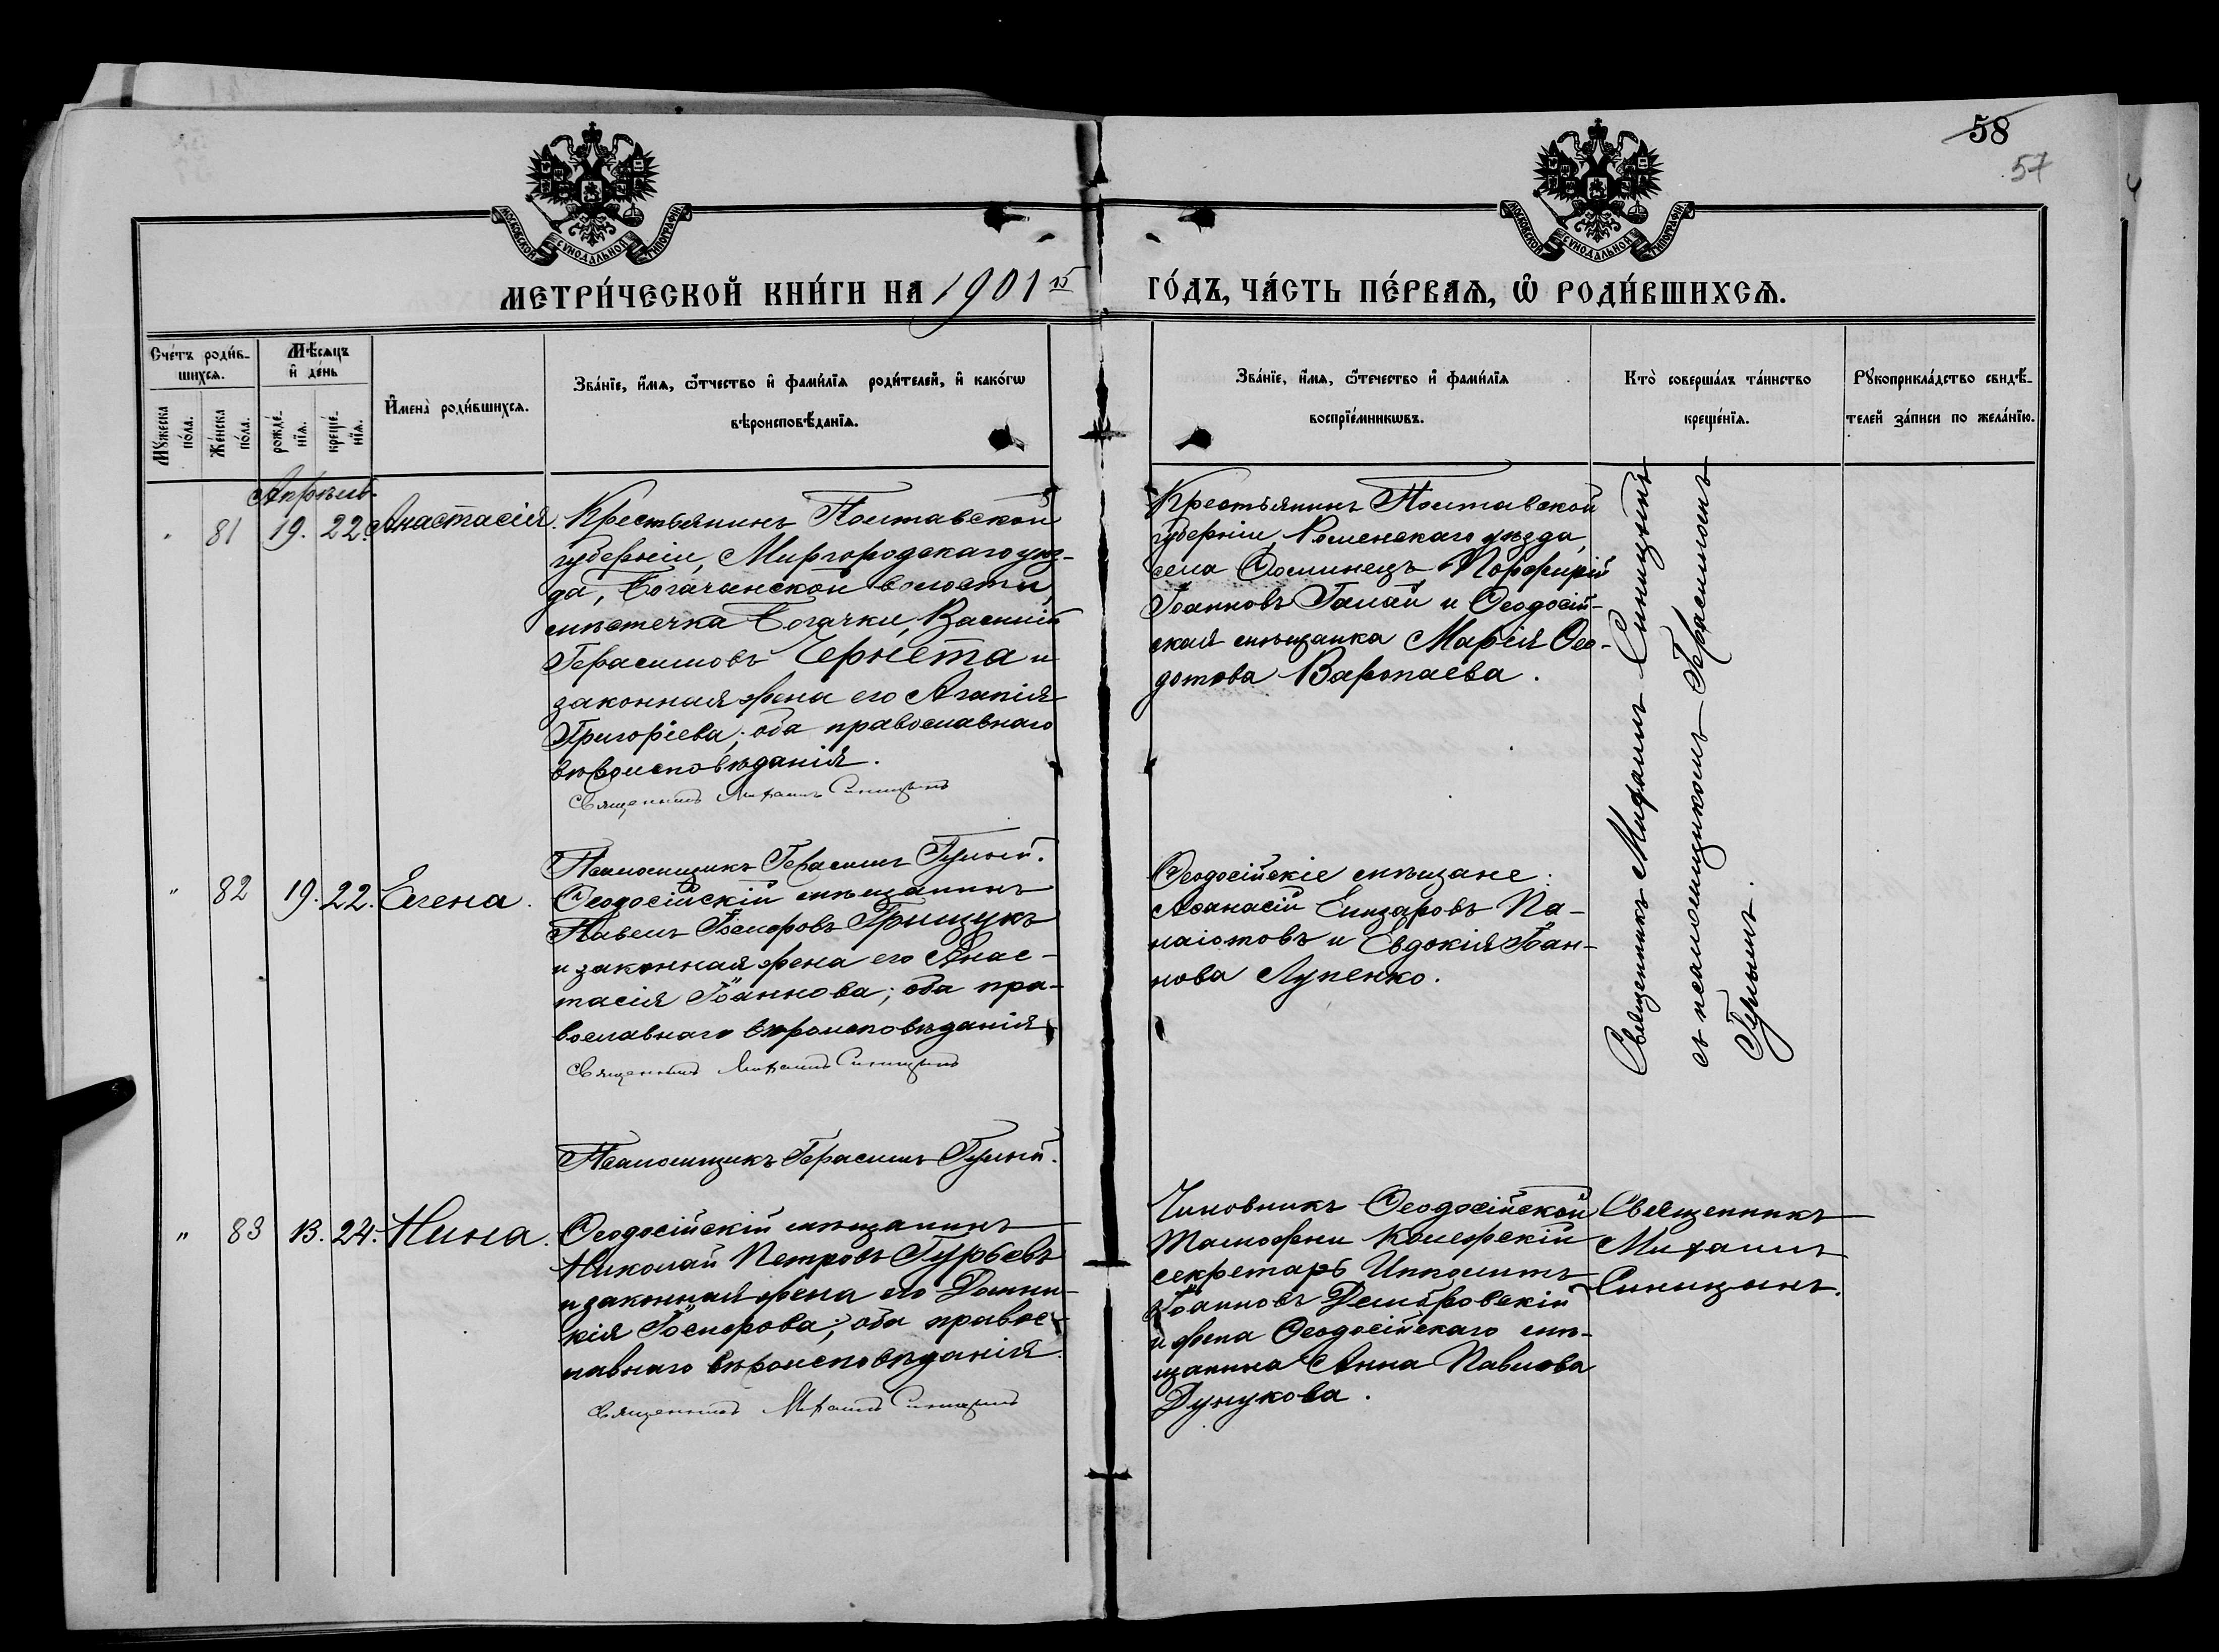 58
57
МОСКОВСКОЙ СѴНОДАЛЬНОЙ ТИПОГРАФІИ
МОСКОВСКОЙ СѴНОДАЛЬНОЙ ТИПОГРАФІИ
МЕТРИ́ЧЕСКОЙ КНИ́ГИ НА 1901й ГО́ДЪ, ЧА́СТЬ ПЕ́РВАѦ, Ѡ҆ РОДИ́ВШИХСѦ.
Сче́тъ роди́в-
шихсѧ.
Мꙋжеска по́ла.
Же́нска по́ла.
Мѣ́сѧцъ
и҆ де́нь
рожде́-
нїѧ.
креще́-
нїѧ.
И҆мена̀ роди́вшихсѧ.
Зва́нїе, и҆́мѧ, ѻ҆́тчество и҆ фами́лїѧ роди́телей, и҆ како́гѡ
вѣроисповѣ́данїѧ.
Зва́нїе, и҆́мѧ, ѻ҆́течество и҆ фами́лїѧ
воспрїе́мникѡвъ.
Кто̀ соверша́лъ та́инство
креще́нїѧ.
Рꙋкоприкла́дство свидѣ́-
телей за́писи по жела́нїю.
Апрѣль.
" 81 19. 22. Анастасія.
Крестьянинъ Полтавской
губерніи, Миргородскаго уѣз-
да, Богачанской волости,
мѣстечка Богачки, Василій
Герасимовъ Чернета и
законная жена его Агапія
Григоріева; оба православнаго
вѣроисповѣданія.
Священникъ Михаилъ Синицынъ
Псаломщикъ Герасимъ Гулый.
Крестьянинъ Полтавской
губерніи, Роменскаго уѣзда,
села Порфирій
Іоанновъ Галай и Ѳеодосій-
ская мѣщанка Марія Ѳео-
дотова Варопаева.
Священникъ Михаилъ Синицынъ
съ псаломщикомъ Герасимомъ
Гулымъ.
" 82 19. 22. Елена.
Ѳеодосійскій мѣщанинъ
Павелъ Іосифовъ Грищукъ
и законная жена его Анас-
тасія Іоаннова; оба пра-
вославнаго вѣроисповѣданія
Священникъ Михаилъ Синицынъ
Псаломщикъ Герасимъ Гулый.
Ѳеодосійскіе мѣщане:
Аѳанасій Елизаровъ Па-
наіотовъ и Евдокія Іоан-
нова Лупенко.
" 83 13. 24. Нина.
Ѳеодосійскій мѣщанинъ
Николай Петровъ Гурьевъ
и законная жена его Домни-
кія Іосифова; оба правос-
лавнаго вѣроисповѣданія.
Священникъ Михаилъ Синицынъ
Чиновникъ Ѳеодосійской
таможни коллежскій
секретарь Ипполитъ
Іоанновъ Домбровскій
и жена Ѳеодосійскаго мѣ-
щанина Анна Павлова
Дунукова.
Священникъ
Михаилъ
Синицынъ.